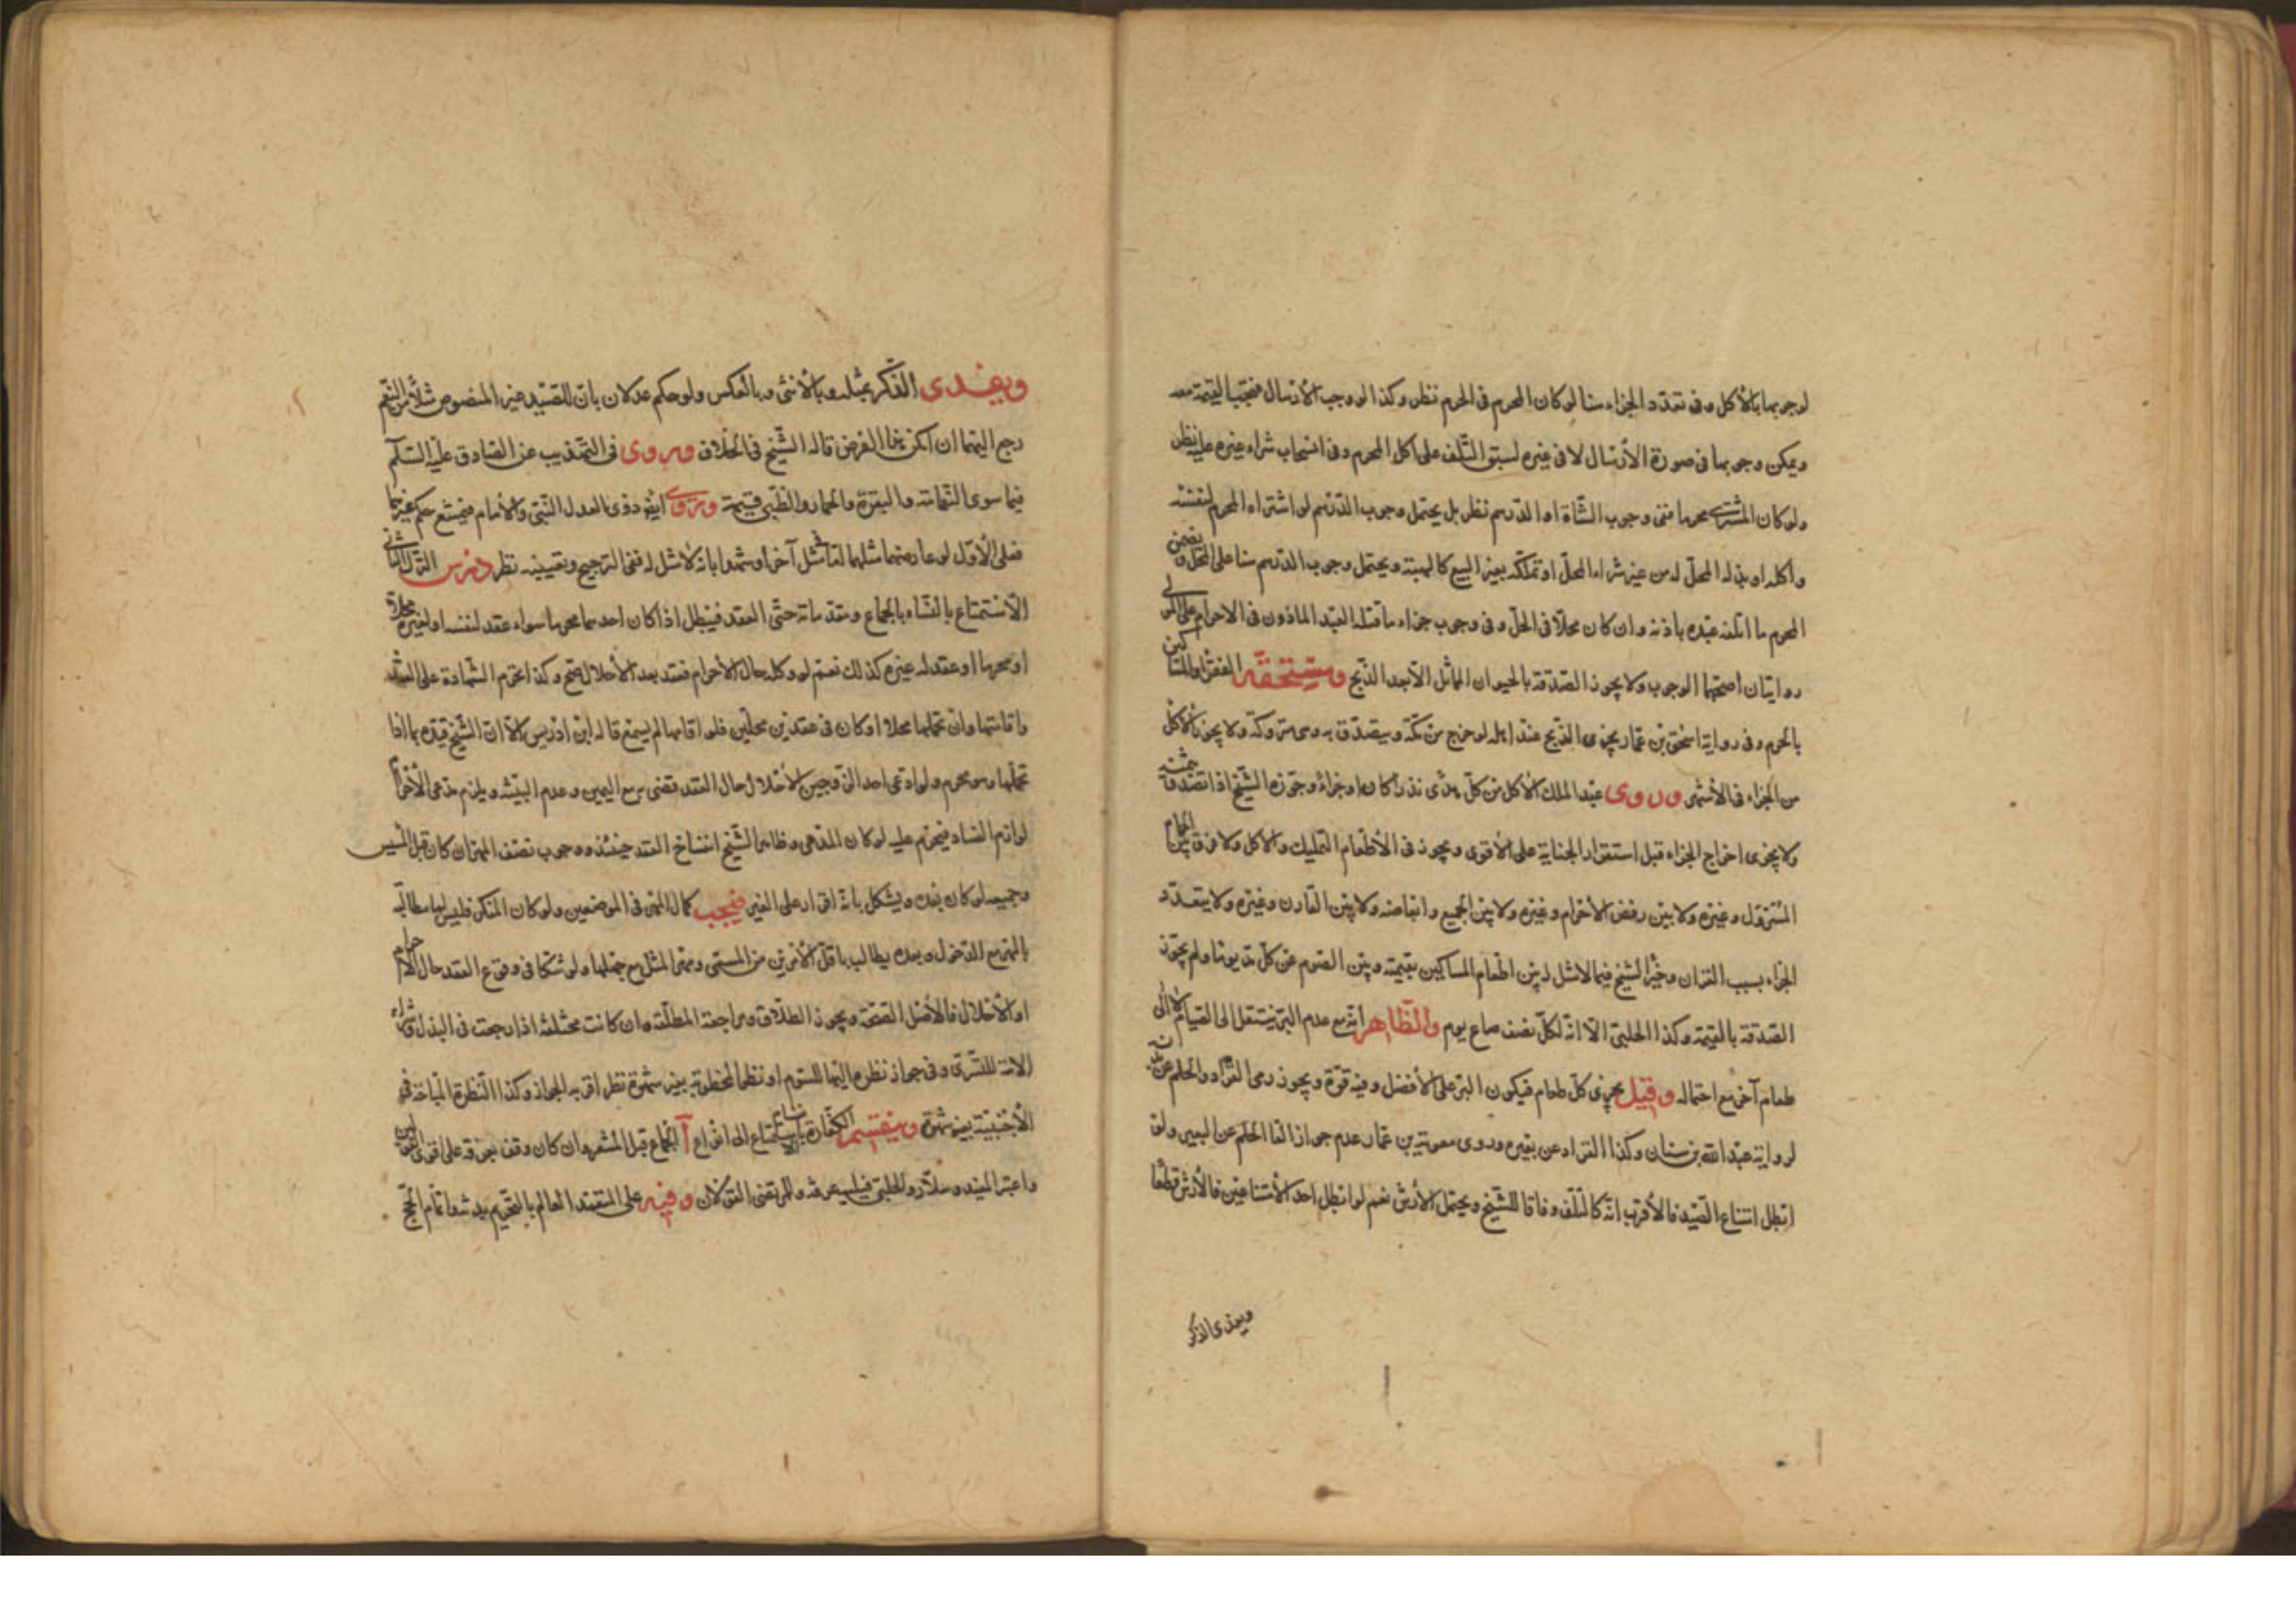 لوجوبها بالأكل وفي تعدد الجزاء هنا لو كان المحرم في الحرم نظر وكذا لو وجب الأرسال فتجب القيمة معه
ويمكن وجوبها في صورة الأرسال لا في غيره لسبق التلف على اكل المحرم وفي انسحاب شراء غيره عليه نظر
ولو كان المشتري محرما ففي وجوب الشاة او الدرهم نظر بل يحتمل وجوب الدرهم لو اشتراه المحرم لنفسه
وأكله او بذله المحل له من غير شراء المحل او تملكه بغير البيع كالهبة ويحتمل وجوب الدرهم هنا على المحل ويضمن
المحرم ما اتلفه عبده باذنه وان كان محلا في الحل وفي وجوب جزاء ما قتله العبد الماذون في الاحرام على المولى
روايتان اصحهما الوجوب ولا يجوز الصدقة بالحيوان المماثل الا بعد الذبح ومستحقه الفقراء والمساكين
بالحرم وفي رواية اسحق بن عمار يجزي الذبح عند اهله لو خرج من مكة ويتصدق به وهي متروكة ولا يجوز الأكل
من الجزاء في الأشهر وروى عبد الملك الأكل من كل هدي نذرا كان او جزاء وجوزه الشيخ اذا تصدق بثمنه
ولا يجزي اخراج الجزاء قبل استقرار الجناية على الأقوى ويجوز في الأطعام التمليك والأكل ولا فرق بين الحمام
المسرول وغيره ولا بين رفض الأحرام وغيره ولا بين الجميع وابعاضه ولا بين القارن وغيره ولا يتعدد
الجزاء بسبب القران وخير الشيخ فيما لا مثل له بين اطعام المساكين بقيمته وبين الصوم عن كل مد يوما ولم يجوز
الصدقة بالقيمة وكذا الحلبي الا انه لكل نصف صاع يوم والظاهر انه مع عدم البر ينتقل الى الصيام لا الى
طعام آخر مع احتماله وقيل يجزي كل طعام فيكون البر على الأفضل وفيه قوة ويجوز رمي القراد والحلم عن بدنه
لرواية عبد الله بن سنان وكذا القراد عن بعيره وروى معوية بن عمار عدم جواز القاء الحلم عن البعير ولو
ابطل امتناع الصيد فالأقرب انه كالتلف وفاقا للشيخ ويحتمل الأرش نعم لو ابطل احد الأمتناعين فالأرش قطعا
ويفدى الذكر
ويفدى الذكر بمثله وبالأنثى وبالعكس ولو حكم عدلان بان للصيد غير المنصوص مثلا من النعم
رجع اليهما ان امكن هذا الفرض قاله الشيخ في الخلاف وروى في التهذيب عن الصادق عليه السلام
فيما سوى النعامة والبقرة والحمار والظبي قيمته وروى ايضا ذوى العدل النبي والأمام فيمتنع حكم غيرهما
فعلى الأول لو عارضهما مثلهما في مثل آخر او شهدا بانه لا مثل له ففي الترجيح وتعيينه نظر درس الترك الثاني
الأستمتاع بالنساء بالجماع ومقدماته حتى العقد فيبطل اذا كان احدهما محرما سواء عقد لنفسه او لغيره محلا
او محرما او عقد له غيره كذلك نعم لو وكله حال الأحرام فعقد بعد الأحلال صح وكذا تحرم الشهادة على العقد
واقامتها وان تحملها محلا او كان في عقد بين محلين فلو اقامها لم يسمع قاله ابن ادريس الا ان الشيخ قيده بما اذا
تحملها وهو محرم ولو ادعى احد الزوجين الأحلال حال العقد قضى به مع اليمين وعدم البينة ويلزم مدعي الأحرام
لوازم الفساد فيحرم عليه لو كان المدعي وظاهر الشيخ انفساخ العقد حينئذ ووجوب نصف المهر ان كان قبل المسيس
وجميعه لو كان بعده ويشكل بانه اقرار على الغير فيجب كمال المهر في الموضعين ولو كان المنكر فليس لها مطالبة
بالمهر مع الدخول وبعده يطالب باقل الأمرين من المسمى ومهر المثل مع جهلها ولو شكا في وقوع العقد حال الأحرام
او الأحلال فالأصل الصحة ويجوز الطلاق ومراجعة المطلقة وان كانت مختلعة اذا رجعت في البذل وشراء
الامة للتسري وفي جواز نظره اليها للسوم او نظر المخطوبة بغير شهوة نظر اقربه الجواز وكذا النظرة المباحة في
الأجنبية بغير شهوة وينقسم الكفارة بانقسام الأستمتاع الى انواع آ الجماع قبل المشعر وان كان وقف بعرفة على اقوى القولين
واعتبر المفيد وسلار والحلبي قبلية عرفة وللمرتضى القولان وفيه على المتعمد العالم بالتحريم بدنة واتمام الحج